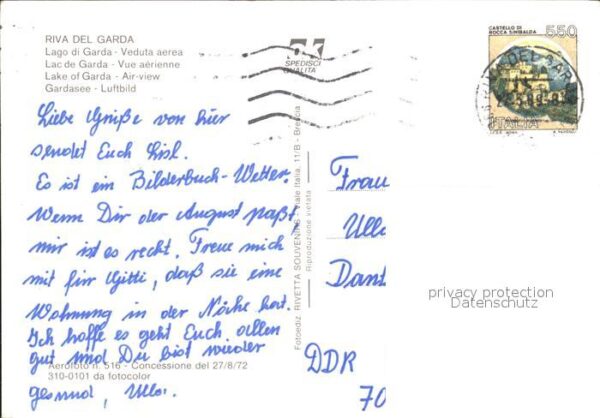 RIVA DEL GARDA
Lago di Garda - Veduta aerea
Lac de Garda - Vue aérienne
Lake of Garda - Air-view
Gardasee - Luftbild
SPEDISCI
QUALITA'
CASTELLO DI
ROCCA SINIBALDA
550
ITALIA
Liebe Grüße von hier
sendet Euch Lisl.
Es ist ein Bilderbuch-Wetter.
Wenn Dir der August paßt
mir ist es recht. Freue mich
mit für Gitti, daß sie eine
Wohnung in der Nähe hat.
Ich hoffe es geht Euch allen
gut und Du bist wieder
gesund, Ulla.
Aerofoto n. 516 - Concessione del 27/8/72
310-0101 da fotocolor
Fotoediz. RIVETTA SOUVENIRS - Viale Italia, 11/B - Brescia
Riproduzione vietata
Frau
Ulla
Dant
DDR
70
privacy protection
Datenschutz